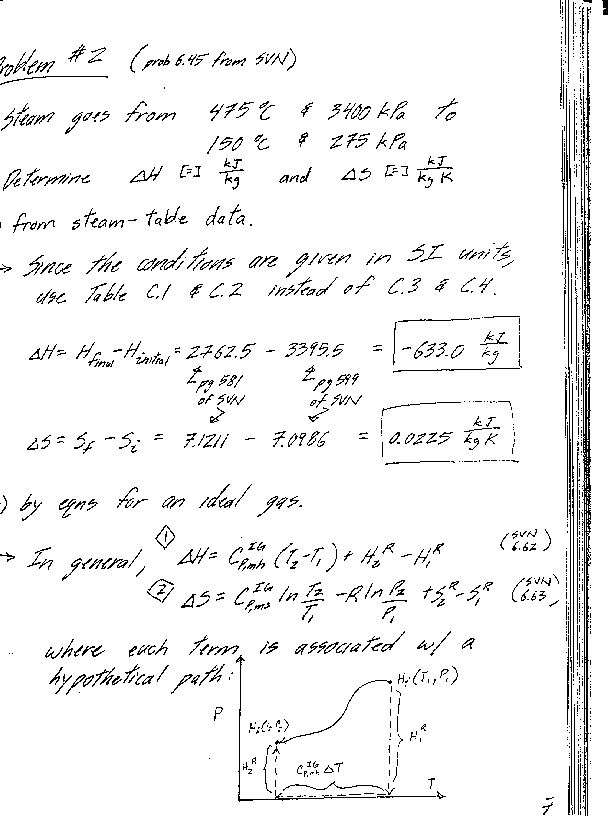 Problem #2 (prob 6.45 from SVN)
Steam goes from 475 °C & 3400 kPa to
150 °C & 275 kPa
Determine ΔH [=] kJ/kg and ΔS [=] kJ/kg K
) from steam-table data.
→ Since the conditions are given in SI units,
use Table C.1 & C.2 instead of C.3 & C.4.
ΔH = H final - H initial = 2762.5 - 3395.5 = -633.0 kJ/kg
pg 581 of SVN pg 599 of SVN
ΔS = Sf - Si = 7.1211 - 7.0986 = 0.0225 kJ/kg K
) by eqns for an ideal gas.
→ In general, ① ΔH = C^IG_Pmh (T2-T1) + H2^R - H1^R (SVN 6.62)
② ΔS = C^IG_Pms ln T2/T1 - R ln P2/P1 + S2^R - S1^R (SVN 6.63)
where each term is associated w/ a
hypothetical path:
P
H1 (T1, P1)
H2^R
C^IG_Pmh ΔT
H1^R
T
7